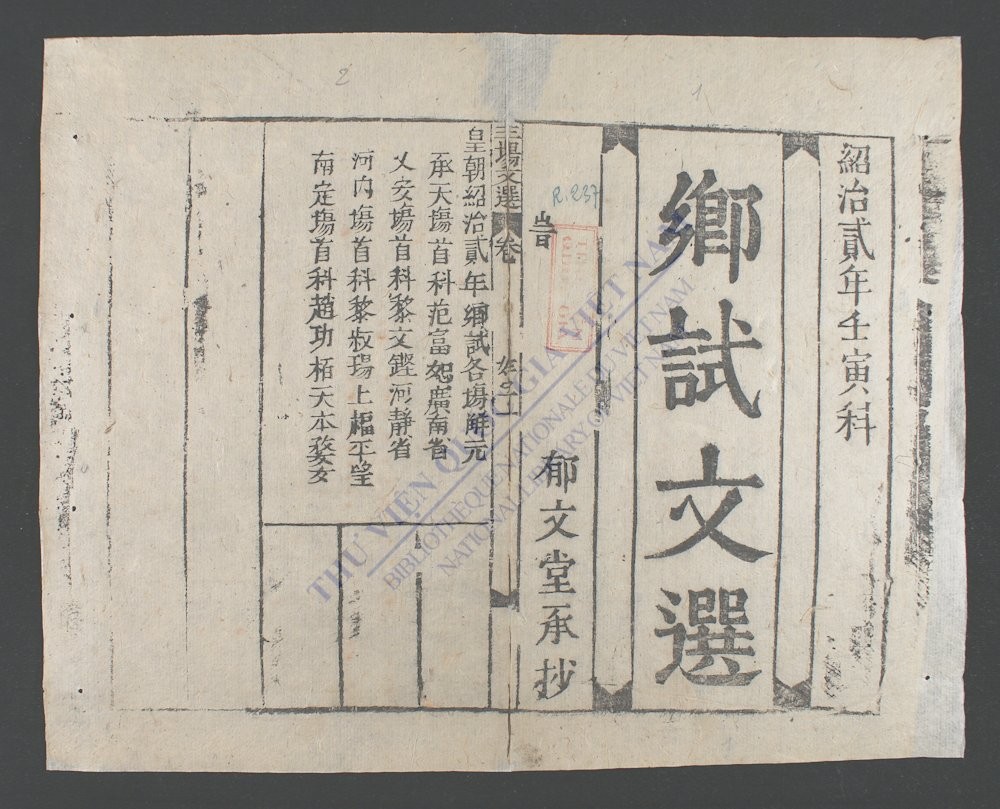 紹治貳年壬寅科
鄉試文選
郁文堂承抄
三場文選 卷
皇朝紹治貳年鄉試各場觧元
承天場首科范富恕廣南省
乂安場首科黎文鏗河靜省
河内場首科黎叔瑒上福平望
南定場首科趙功 天本
R.237
1
2
THƯ VIỆN QUỐC GIA VIỆT NAM
BIBLIOTHÈQUE NATIONALE DU VIETNAM
NATIONAL LIBRARY OF VIETNAM